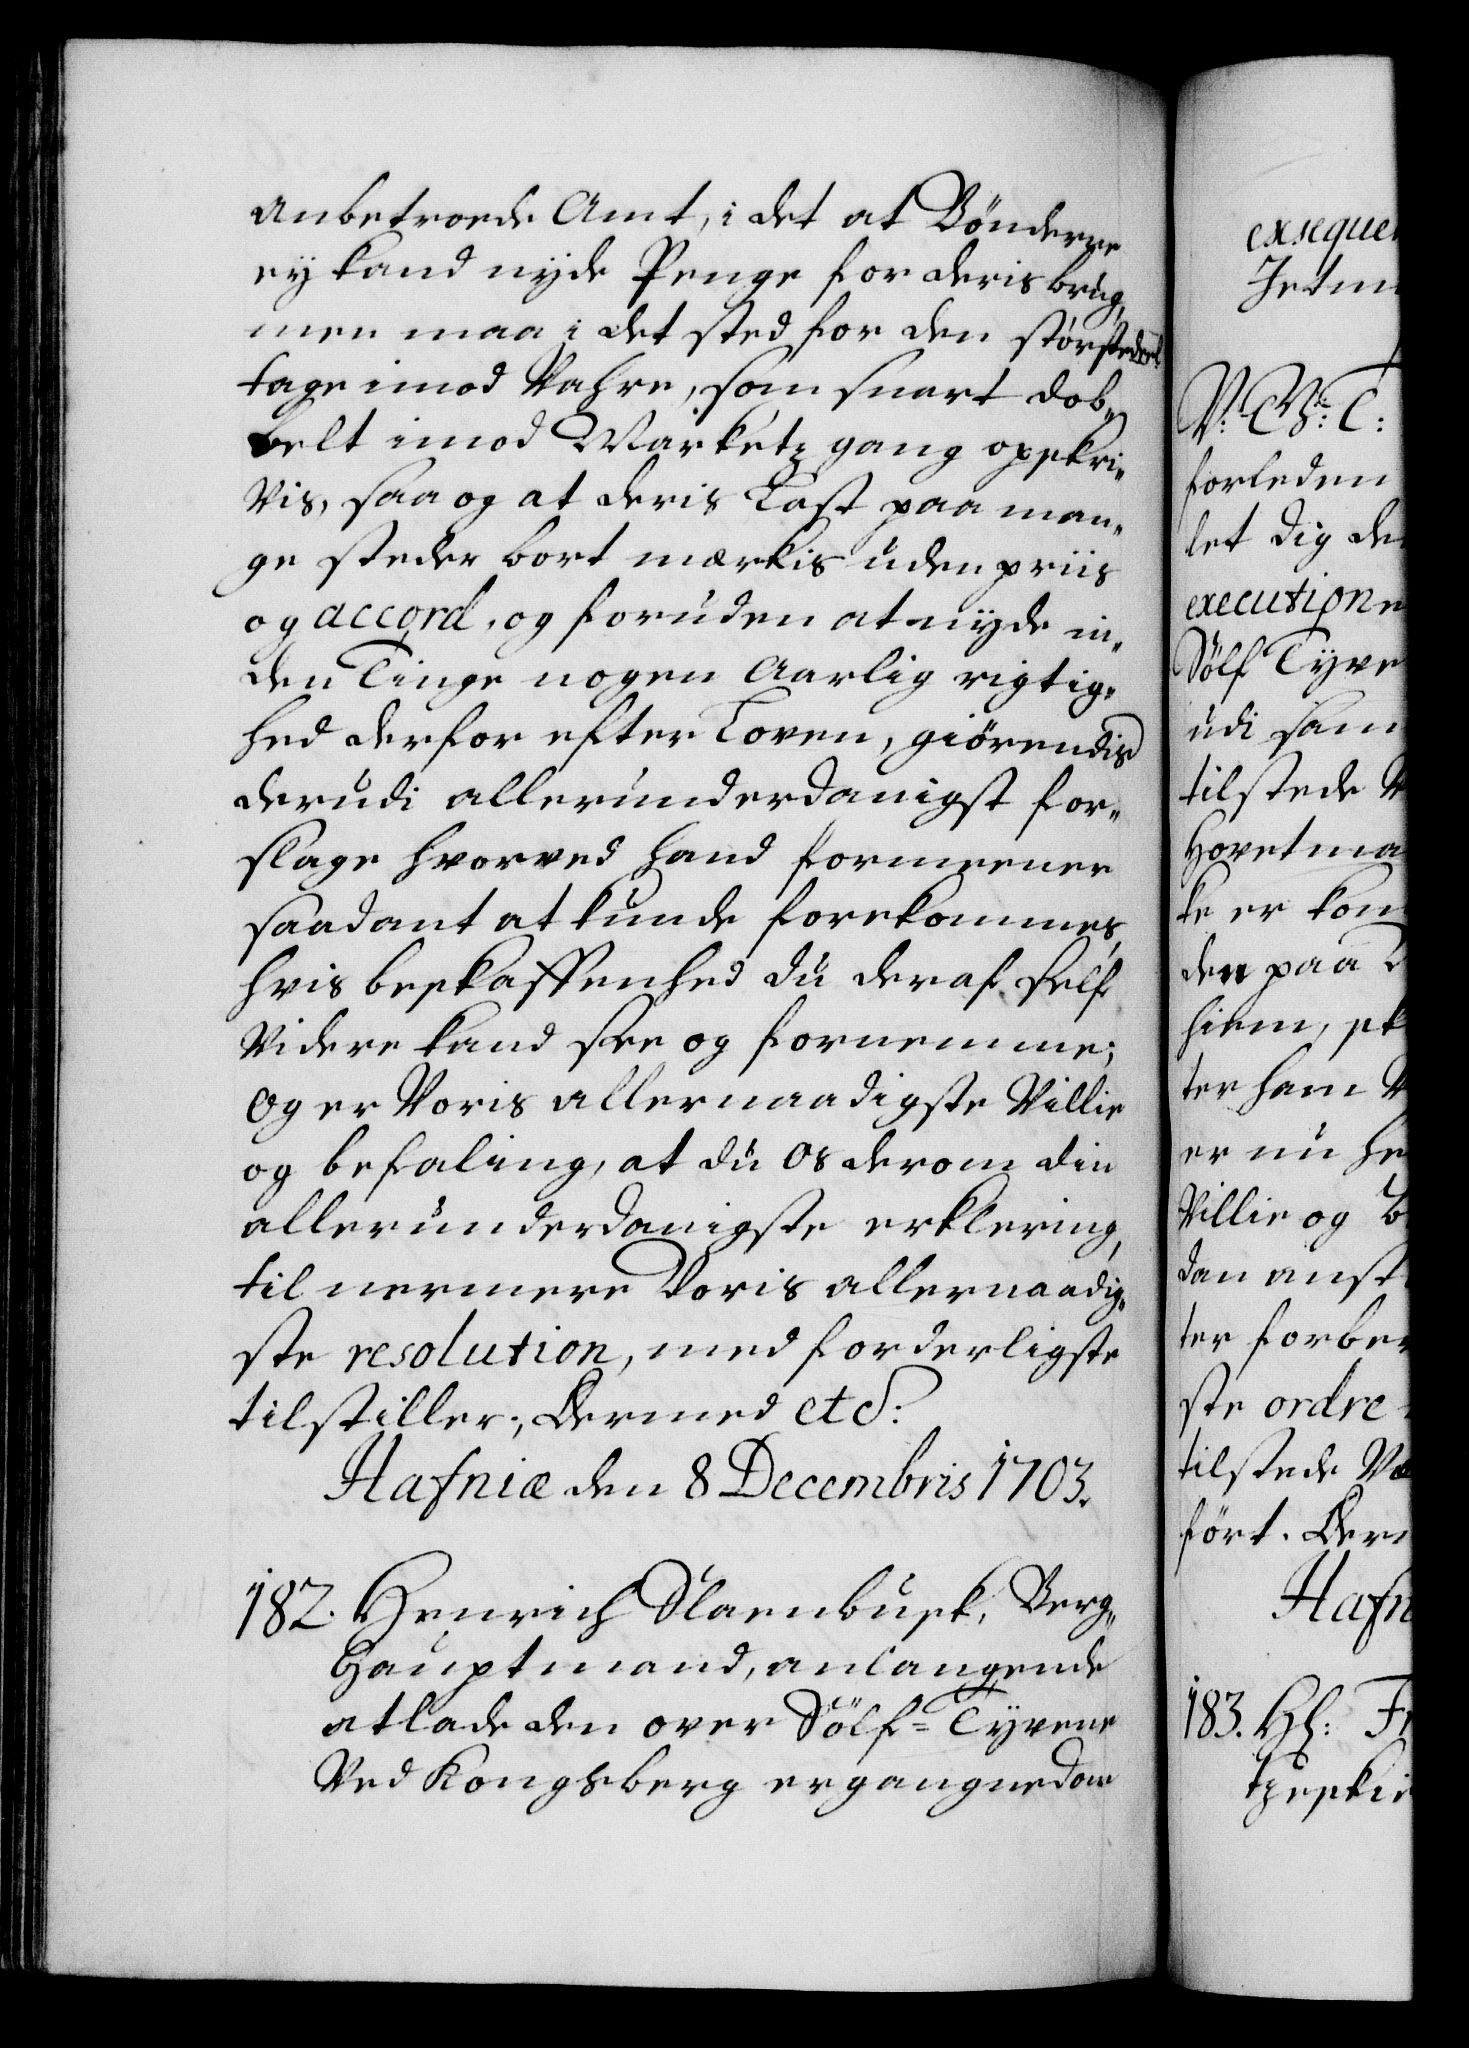 anbetroede Amt, i det at Bønderne
ey kand nyde Penge for deris brug,
men maa i det sted for den størstedeel
tage imod Vahre, som snart dob„
belt imod Marketz gang opskri„
vis, saa og at deris Last paa man„
ge steder bort merkis uden priis
og accord, og foruden at nyde in„
den Tinge nogen Aarlig rigtig„
hed derfor efter Loven, giörendis
derudi allerunderdanigst for„
slage hvorved hand formeener
saadant at kunde forekommes,
hvis beskaffenhed du deraf self
videre kand see og fornemme;
Og er Voris allernaadigste Villie
og befaling, at du Os derom din
allerunderdanigste erklering,
til nermere Voris allernaadig„
ste resolution, med forderligste
tilstiller; Dermed etc:
Hafniæ den 8 Decembris 1703.
182. Henrich Slaenbusk, Berg„
Hauptmand, anlangende
at lade den over Sölf=Tyvene
Ved Kongsberg ergangne dom
exseque
V: G: T:
forleden
let dig de
executione
Sölf Tyve
udi sam
tilstede V
Hovetma
ke er kom
den paa
hiem, sk
ter ham V
er nu he
Villie og B
dan anst
ter forbe
ste ordre
tilstede Væ
fört. Der
Hafn
183. Hl: Fr